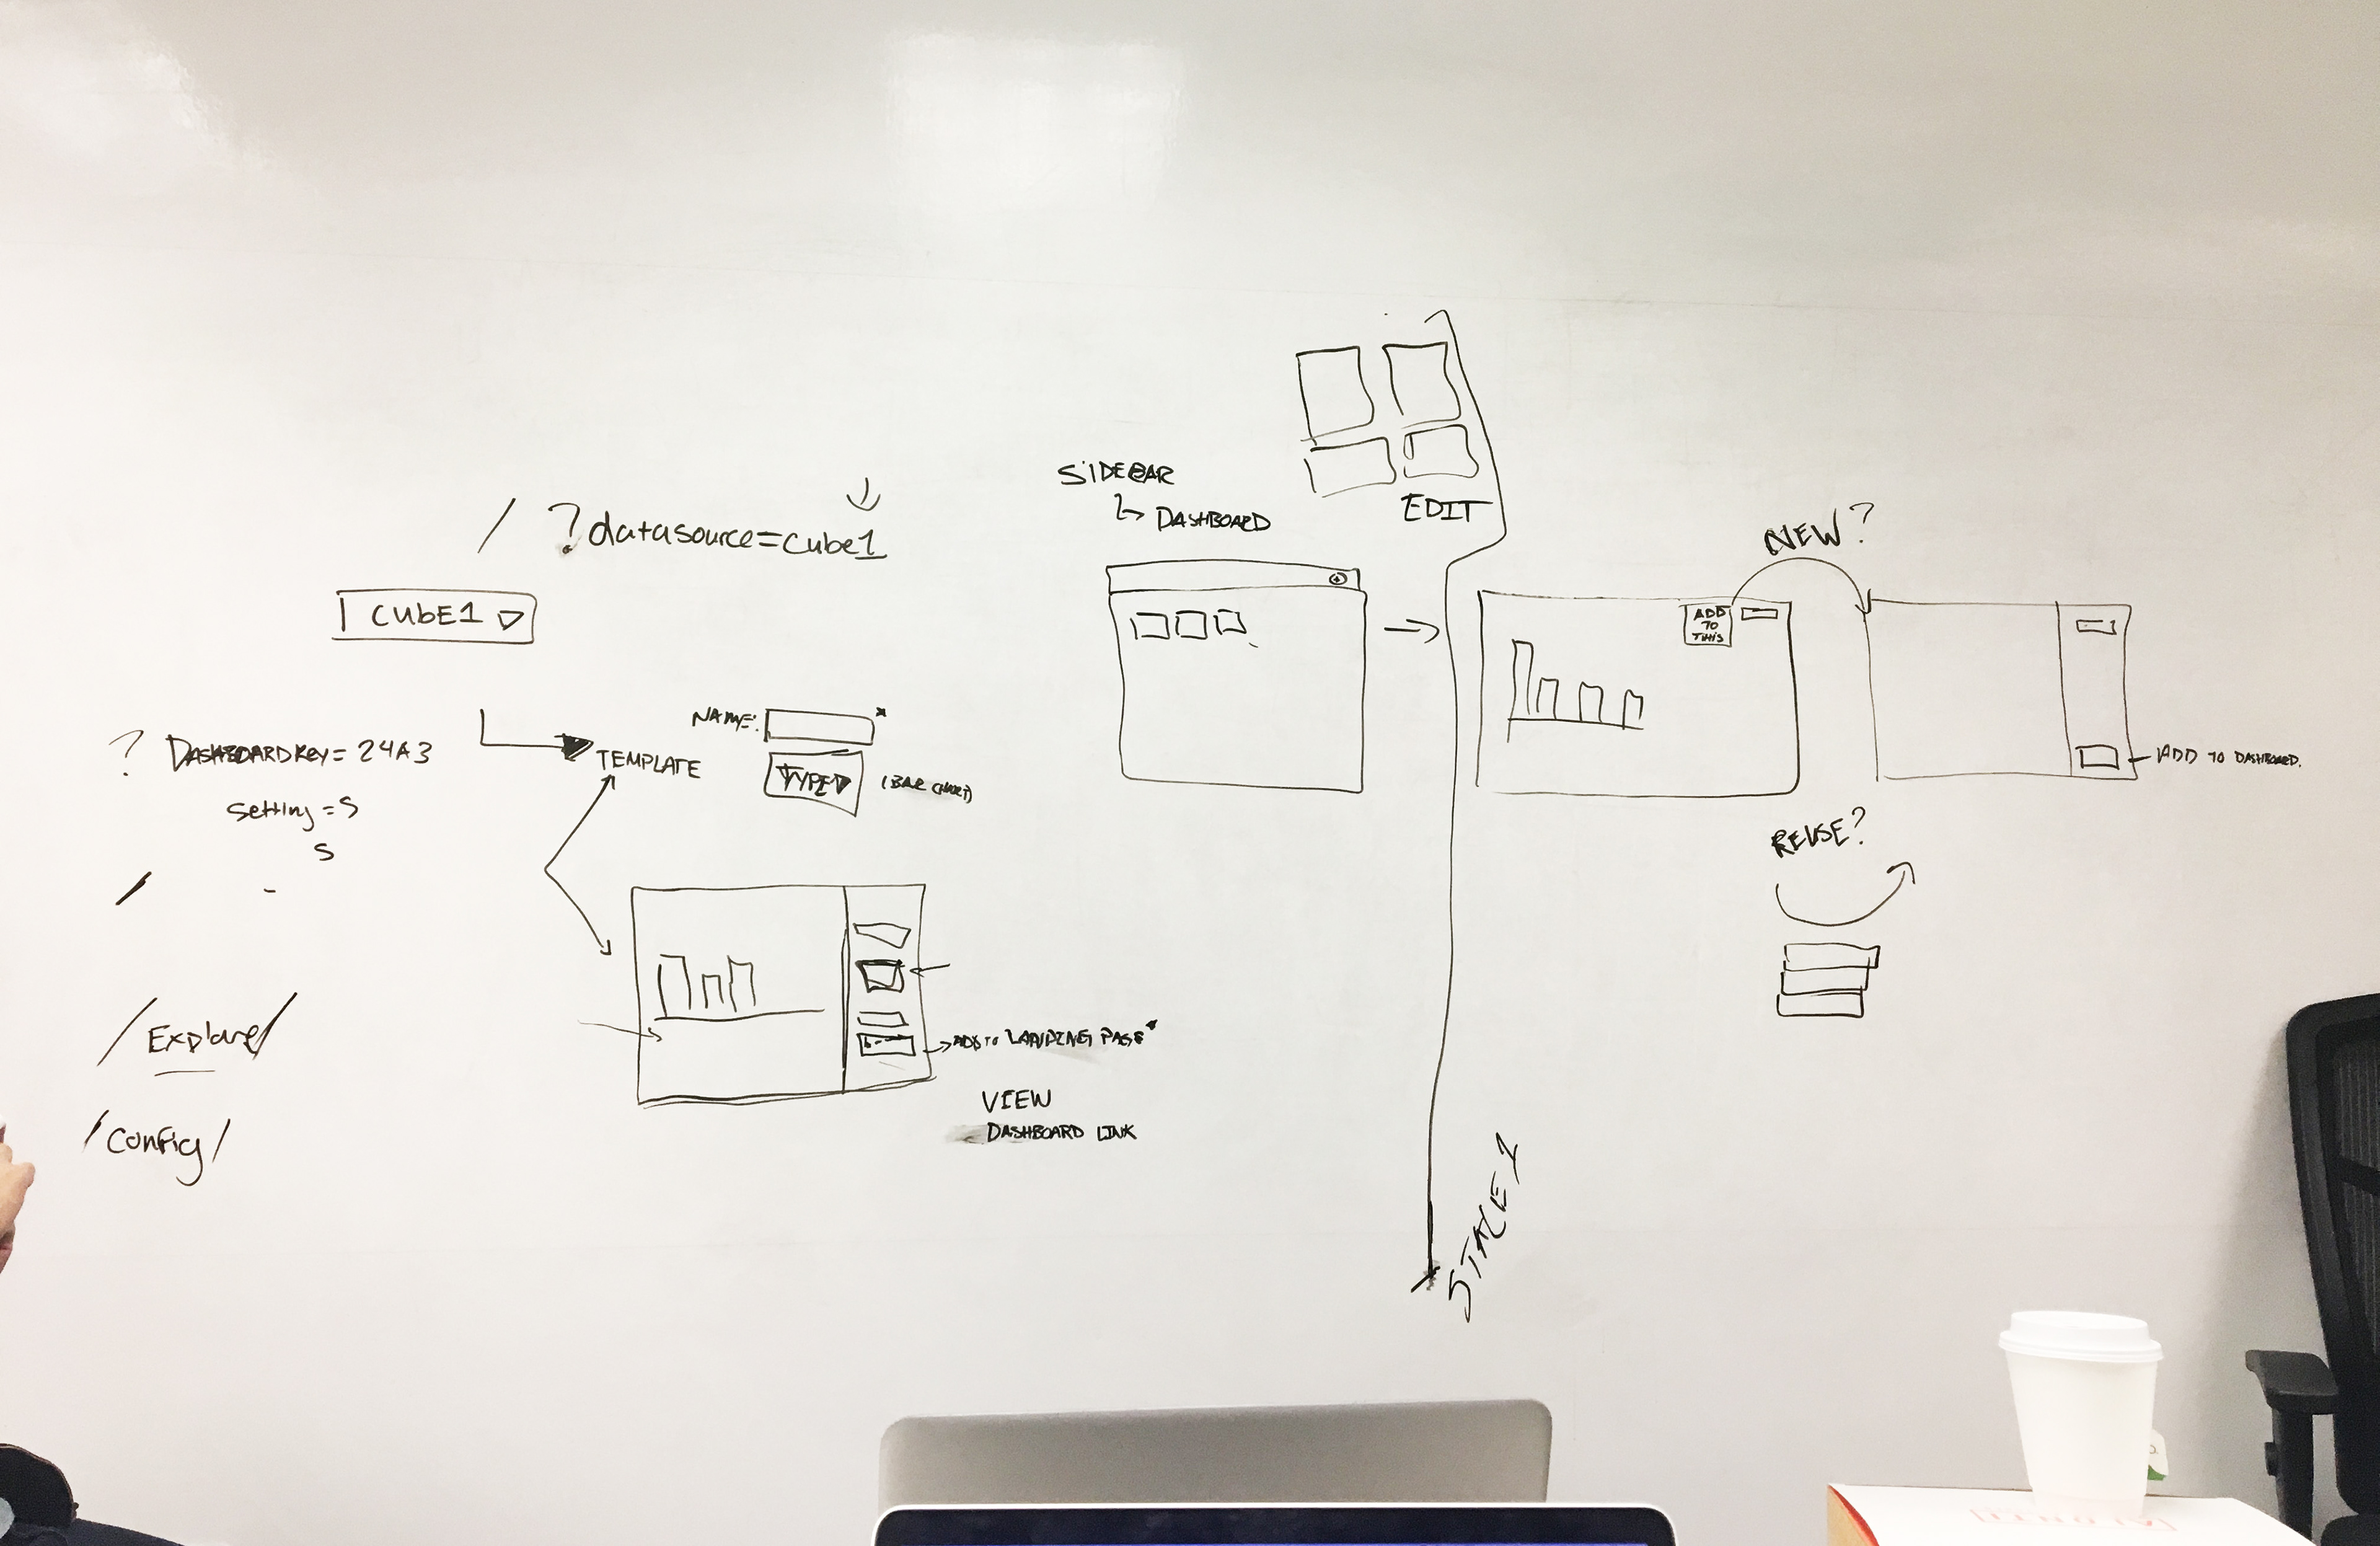 / ?datasource=cube1
CUBE1
? DASHBOARDKEY= 24A3
setting = S
S
/ -
/Explore/
/config/
TEMPLATE
NAME: *
TYPE
(BAR CHART)
ADD TO LANDING PAGE*
VIEW
DASHBOARD LINK
SIDEBAR
DASHBOARD
EDIT
STAGE 1
NEW?
ADD
TO
THIS
ADD TO DASHBOARD.
REUSE?